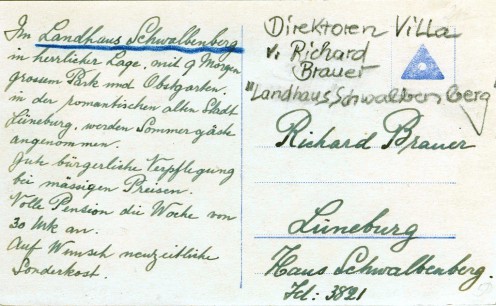 Im Landhaus Schwalbenberg
in herrlicher Lage, mit 9 Morgen
grossem Park und Obstgarten,
in der romantischen alten Stadt
Lüneburg, werden Sommergäste
angenommen.
Gute bürgerliche Verpflegung
bei mässigen Preisen.
Volle Pension die Woche von
30 Mk an.
Auf Wunsch neuzeitliche
Sonderkost.
Direktoren Villa
v. Richard
Brauer
"Landhaus Schwalbenberg"
Richard Brauer
Lüneburg
Haus Schwalbenberg.
Tel: 3821